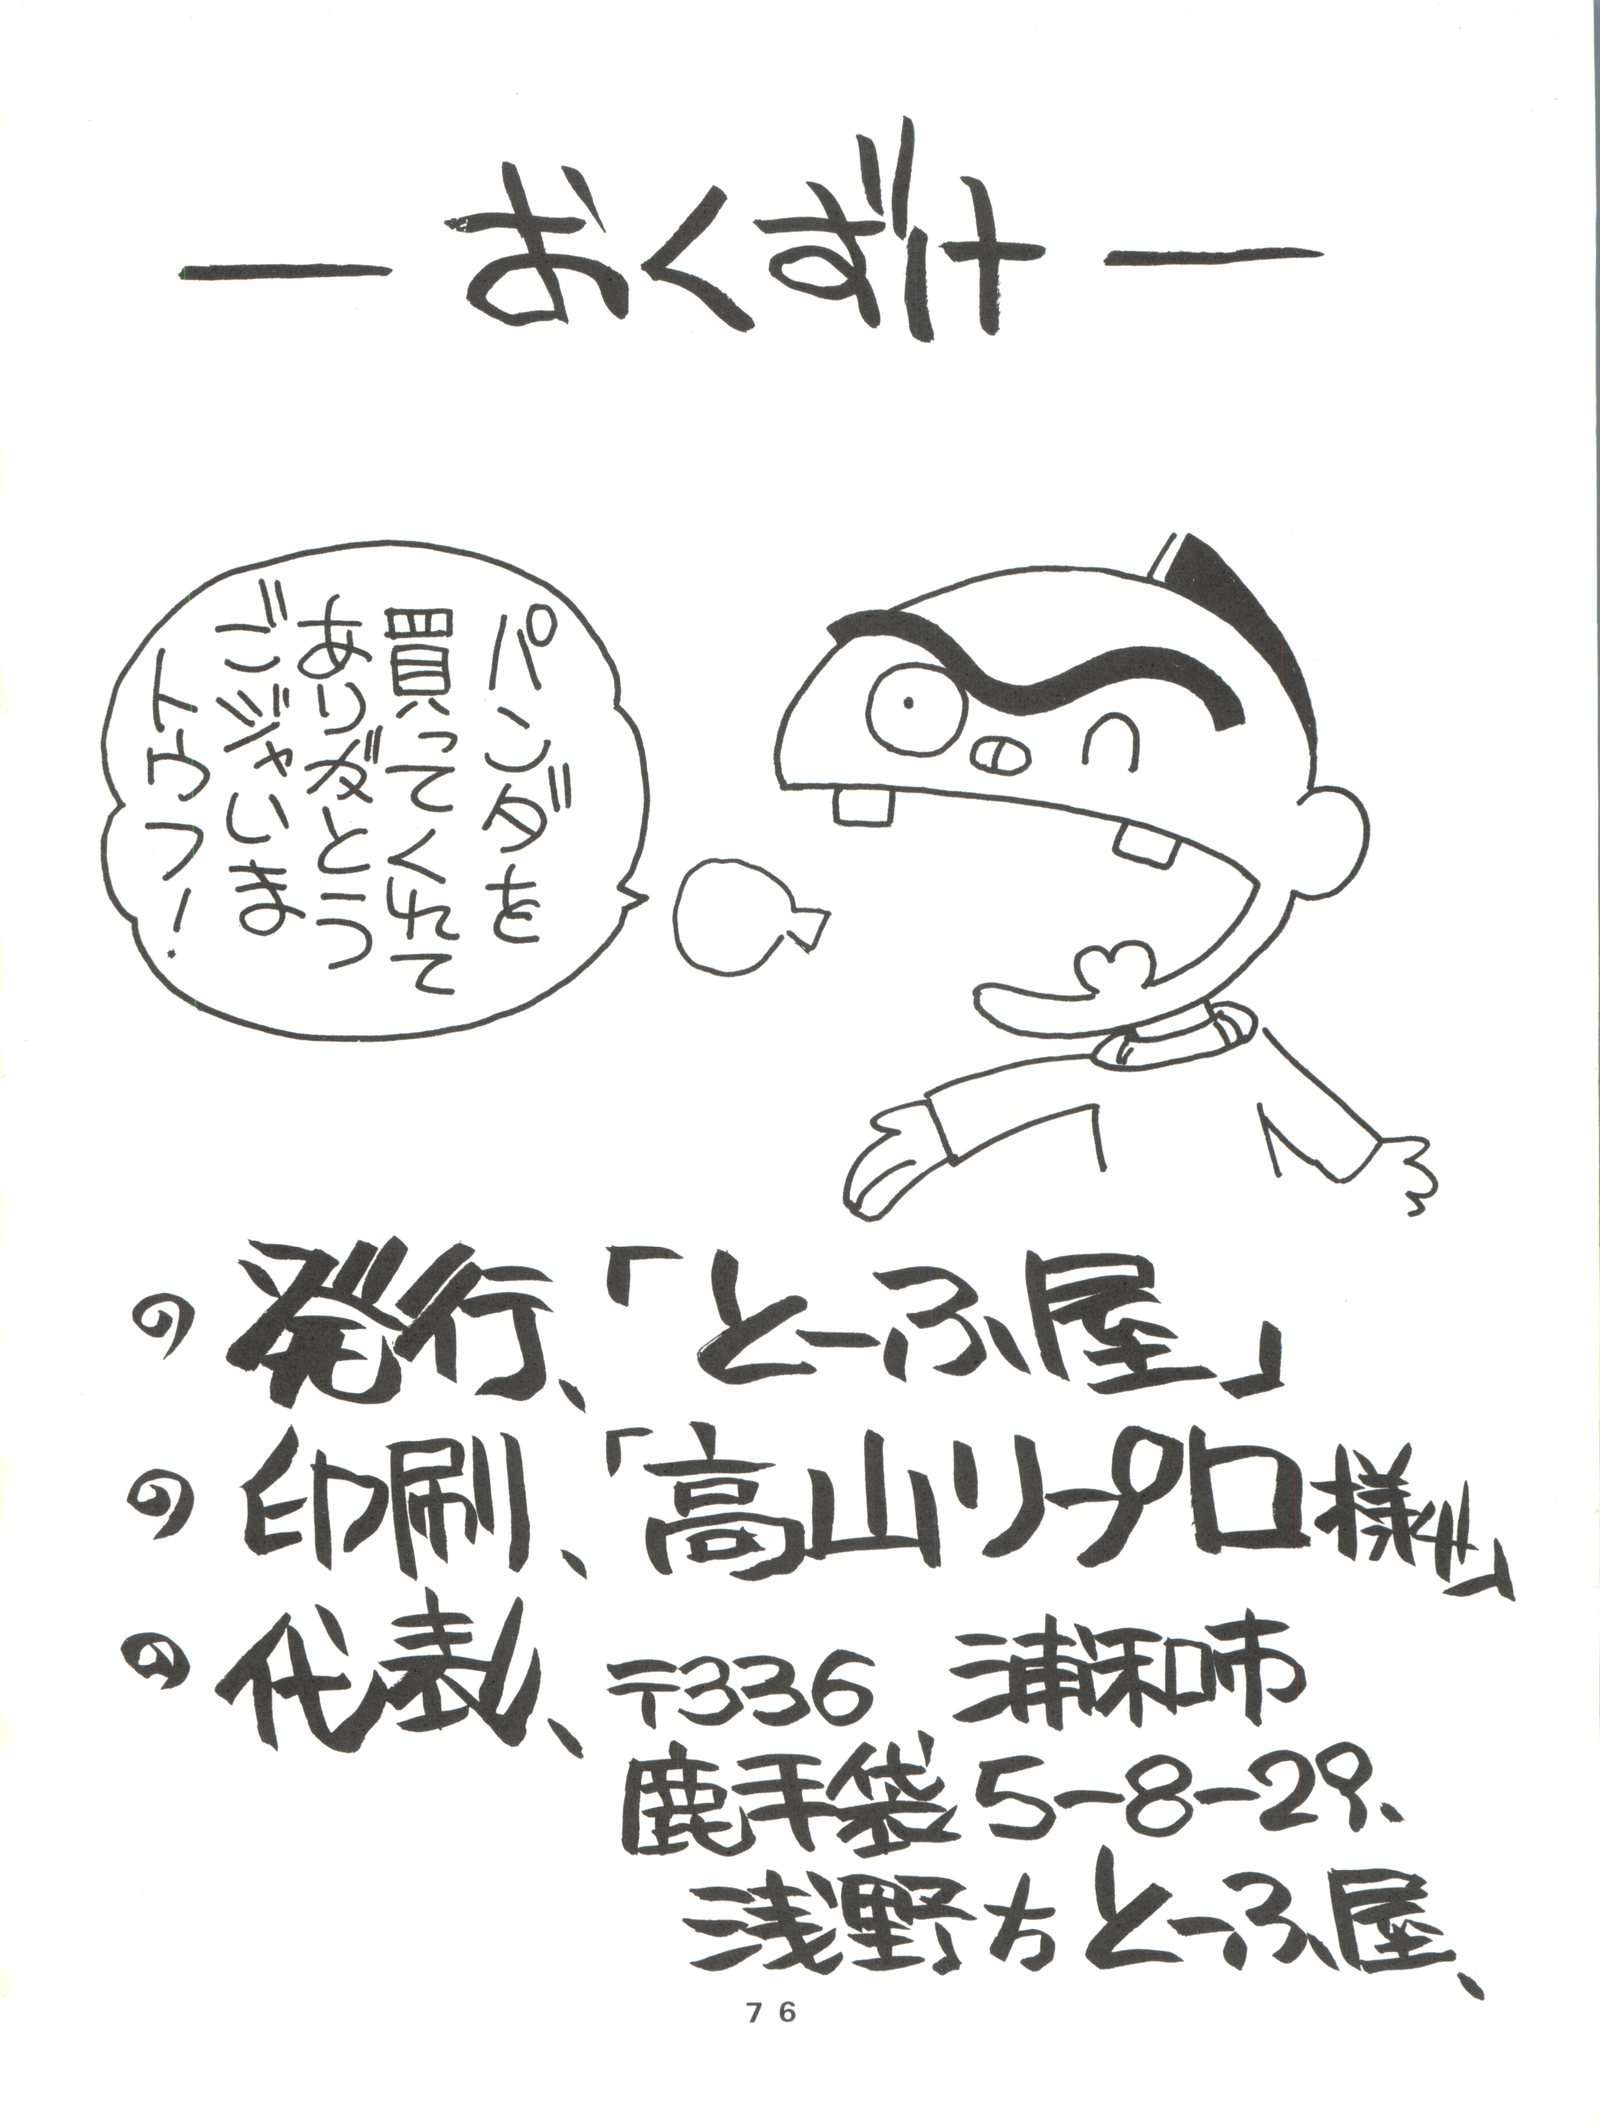 おくずけ
パンダを
買ってくれて
ありガとう
ごジャいま
トウフ!
の 発行、「とーふ屋」
の 印刷、「高山リープロ様♯」
の 代表、〒336 浦和市
鹿手袋5-8-29、
浅野方とーふ屋、
76